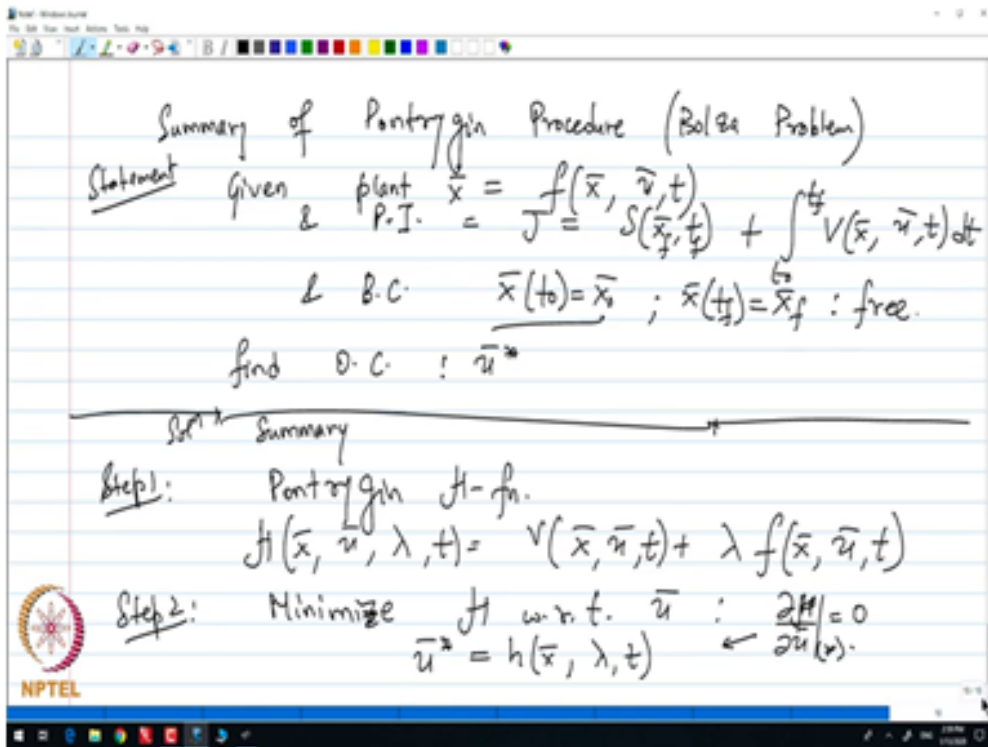 Summary of Pontrygin Procedure (Bolza Problem)
Statement Given plant x̄ = f(x̄, ū, t)
& P.I. = J = S(x̄_f, t_f) + ∫_{t_0}^{t_f} V(x̄, ū, t) dt
& B.C. x̄(t_0) = x̄_0 ; x̄(t_f) = x̄_f : free.
find O.C. : ū*
Sol^n Summary
Step1: Pontrygin H-fn.
H(x̄, ū, λ, t) = V(x̄, ū, t) + λ f(x̄, ū, t)
Step2: Minimize H w.r.t. ū : ∂H/∂ū|_(*) = 0
ū* = h(x̄, λ, t) ←
NPTEL